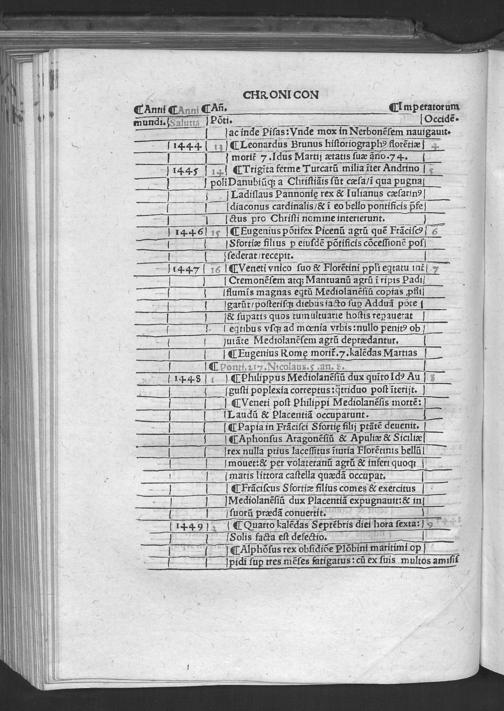 CHRONICON
¶Anni ¶Anni ¶Añ. ¶Imperatorum
mundi. Salutis Põti. Occidẽ.
ac inde Pisas: Vnde mox in Nerbonẽsem nauigauit.
1444 13 ¶Leonardus Brunus historiographꝰ florẽtiæ 4
moriť 7. Idus Martij ætatis suæ ãno. 74.
1445 14 ¶Trigĩta ferme Turcarũ milia ĩter Andrino 5
poli Danubiũq; a Christiãis sũt cæsa/ĩ qua pugna
Ladislaus Pannonię rex & Iulianus cæsarinꝰ
diaconus cardinalis/& ĩ eo bello pontificis p̃fe
ctus pro Christi nomine interierunt.
1446 15 ¶Eugenius põtifex Picenũ agrũ quẽ Frãciscꝰ 6
Sfortiæ filius p eiusdẽ põtificis cõcessionẽ pos
sederat: recepit.
1447 16 ¶Veneti vnico suo & Florẽtini ppl̃i eq̃tatu ĩnt 7
Cremonẽsem atq; Mantuanũ agrũ ĩ ripis Padi
flumis magnas eq̃tũ Mediolanẽsiũ copias ,pfli
garũt/posterisq; diebus facto sup Adduã põte
& supatis quos tumultuarie hostis repauerat
eq̃tibus vsq; ad mœnia vrbis: nullo penitꝰ ob
uiãte Mediolanẽsem agrũ deprædantur.
¶Eugenius Romę moriť. 7. kalẽdas Martias
¶Ponti. 217. Nicolaus. 5. an. 8.
1448 1 ¶Philippus Mediolanẽsiũ dux quĩto Id'Au 8
gusti poplexia correptus: q̃triduo post ĩterijt.
¶Veneti post Philippi Mediolanẽsis mortẽ:
Laudũ & Placentiã occuparunt.
¶Papia in Frãcisci Sfortię filij ptãtẽ deuenit.
¶Aphonsus Aragonẽsiũ & Apuliæ & Siciliæ
rex nulla prius lacessitus ĩiuria Florẽtinis bellũ
mouet: & per volateranũ agrũ & inferi quoq;
maris littora castella quædã occupat.
¶Frãciscus Sfortiæ filius comes & exercitus
Mediolanẽsiũ dux Placentiã expugnauit: & in
suorũ prædã conuertit.
1449 2 ¶Quarto kalẽdas Septẽbris diei hora sexta: 9
Solis facta est defectio.
¶Alphõsus rex obsidiõe Plõbini maritimi op
pidi sup tres mẽses fatigatus: cũ ex suis multos amisis